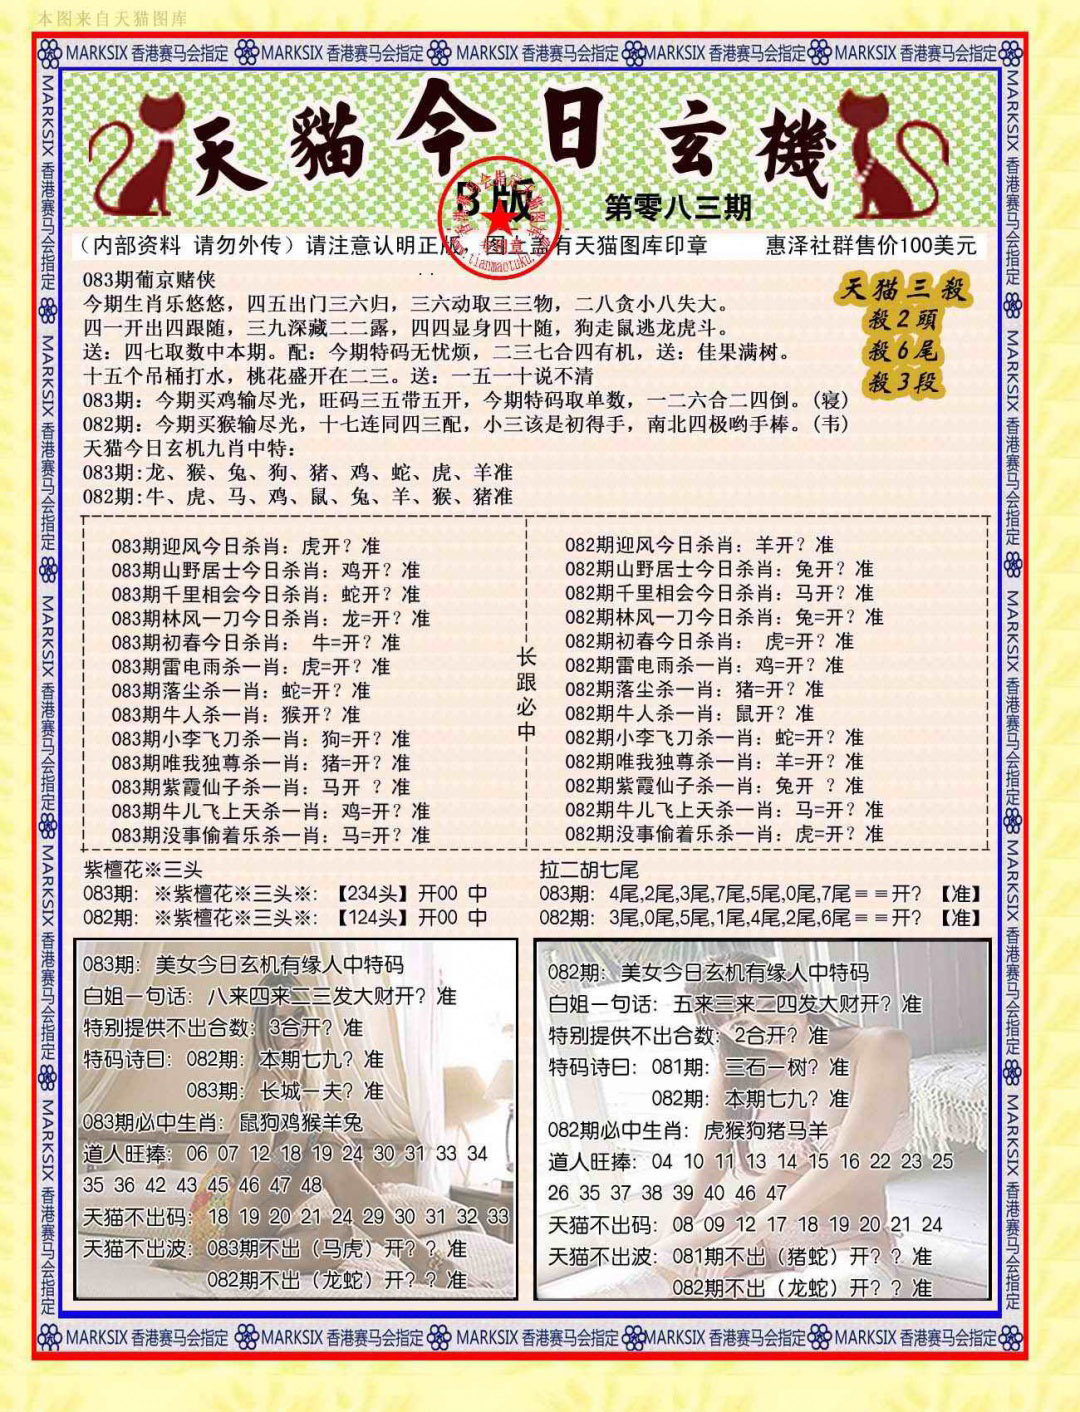 本图来自天猫图库
MARKSIX 香港赛马会指定 MARKSIX 香港赛马会指定 MARKSIX 香港赛马会指定 MARKSIX 香港赛马会指定 MARKSIX 香港赛马会指定
MARKSIX 香港赛马会指定 MARKSIX 香港赛马会指定 MARKSIX 香港赛马会指定 MARKSIX 香港赛马会指定 MARKSIX 香港赛马会指定
天貓今日玄機
B版
第零八三期
（内部资料 请勿外传）请注意认明正版，图上盖有天猫图库印章 惠泽社群售价100美元
专用章
www.tianmaotuku.com
083期葡京赌侠
今期生肖乐悠悠，四五出门三六归，三六动取三三物，二八贪小八失大。
四一开出四跟随，三九深藏二二露，四四显身四十随，狗走鼠逃龙虎斗。
送：四七取数中本期。配：今期特码无忧烦，二三七合四有机，送：佳果满树。
十五个吊桶打水，桃花盛开在二三。送：一五一十说不清
083期：今期买鸡输尽光，旺码三五带五开，今期特码取单数，一二六合二四倒。(寝)
082期：今期买猴输尽光，十七连同四三配，小三该是初得手，南北四极哟手棒。(韦)
天猫今日玄机九肖中特：
083期:龙、猴、兔、狗、猪、鸡、蛇、虎、羊准
082期:牛、虎、马、鸡、鼠、兔、羊、猴、猪准
天猫三殺
殺2頭
殺6尾
殺3段
083期迎风今日杀肖：虎开？准
083期山野居士今日杀肖：鸡开？准
083期千里相会今日杀肖：蛇开？准
083期林风一刀今日杀肖：龙=开？准
083期初春今日杀肖： 牛=开？准
083期雷电雨杀一肖：虎=开？准
083期落尘杀一肖：蛇=开？准
083期牛人杀一肖：猴开？准
083期小李飞刀杀一肖：狗=开？准
083期唯我独尊杀一肖：猪=开？准
083期紫霞仙子杀一肖：马开 ？准
083期牛儿飞上天杀一肖：鸡=开？准
083期没事偷着乐杀一肖：马=开？准
长跟必中
082期迎风今日杀肖：羊开？准
082期山野居士今日杀肖：兔开？准
082期千里相会今日杀肖：马开？准
082期林风一刀今日杀肖：兔=开？准
082期初春今日杀肖： 虎=开？准
082期雷电雨杀一肖：鸡=开？准
082期落尘杀一肖：猪=开？准
082期牛人杀一肖：鼠开？准
082期小李飞刀杀一肖：蛇=开？准
082期唯我独尊杀一肖：羊=开？准
082期紫霞仙子杀一肖：兔开 ？准
082期牛儿飞上天杀一肖：马=开？准
082期没事偷着乐杀一肖：虎=开？准
紫檀花※三头
083期：※紫檀花※三头※：【234头】开00 中
082期：※紫檀花※三头※：【124头】开00 中
拉二胡七尾
083期：4尾,2尾,3尾,7尾,5尾,0尾,7尾==开？【准】
082期：3尾,0尾,5尾,1尾,4尾,2尾,6尾==开？【准】
083期：美女今日玄机有缘人中特码
白姐一句话：八来四来二三发大财开？准
特别提供不出合数：3合开？准
特码诗曰：082期：本期七九？准
083期：长城一夫？准
083期必中生肖：鼠狗鸡猴羊兔
道人旺捧：06 07 12 18 19 24 30 31 33 34
35 36 42 43 45 46 47 48
天猫不出码：18 19 20 21 24 29 30 31 32 33
天猫不出波：083期不出（马虎）开？？准
082期不出（龙蛇）开？？准
082期：美女今日玄机有缘人中特码
白姐一句话：五来三来二四发大财开？准
特别提供不出合数：2合开？准
特码诗曰：081期：三石一树？准
082期：本期七九？准
082期必中生肖：虎猴狗猪马羊
道人旺捧：04 10 11 13 14 15 16 22 23 25
26 35 37 38 39 40 46 47
天猫不出码：08 09 12 17 18 19 20 21 24
天猫不出波：081期不出（猪蛇）开？？准
082期不出（龙蛇）开？？准
MARKSIX 香港赛马会指定 MARKSIX 香港赛马会指定 MARKSIX 香港赛马会指定 MARKSIX 香港赛马会指定 MARKSIX 香港赛马会指定
MARKSIX 香港赛马会指定 MARKSIX 香港赛马会指定 MARKSIX 香港赛马会指定 MARKSIX 香港赛马会指定 MARKSIX 香港赛马会指定